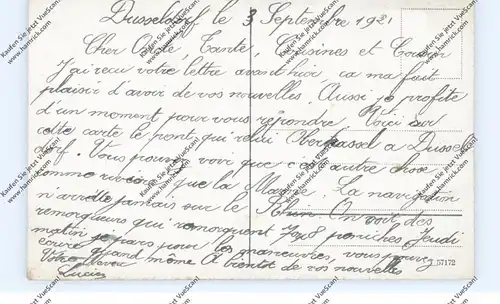 Dusseldorf le 3 Septembre 1921
Cher Oncle, Tante, Cousines et Cousin
J'ai reçu votre lettre avant hier, ça ma fait
plaisir d'avoir de vos nouvelles. Aussi je profite
d'un moment pour vous répondre. Voici sur
cette carte le pont qui relie Oberkassel a Dussel
dorf. Vous pouvez voir que c'est autre chose
comme rivière que la Marne. La navigation
n'arrête jamais sur le Rhin On voit des
remorqueurs qui remorquent 7 et 8 péniches Jeudi
matin je pars pour les manœuvres, vous pouvez
écrire quand même A bientôt de vos nouvelles
Votre Neveu
Lucien
57172
Kaufen Sie jetzt VueScan!
www.hamrick.com